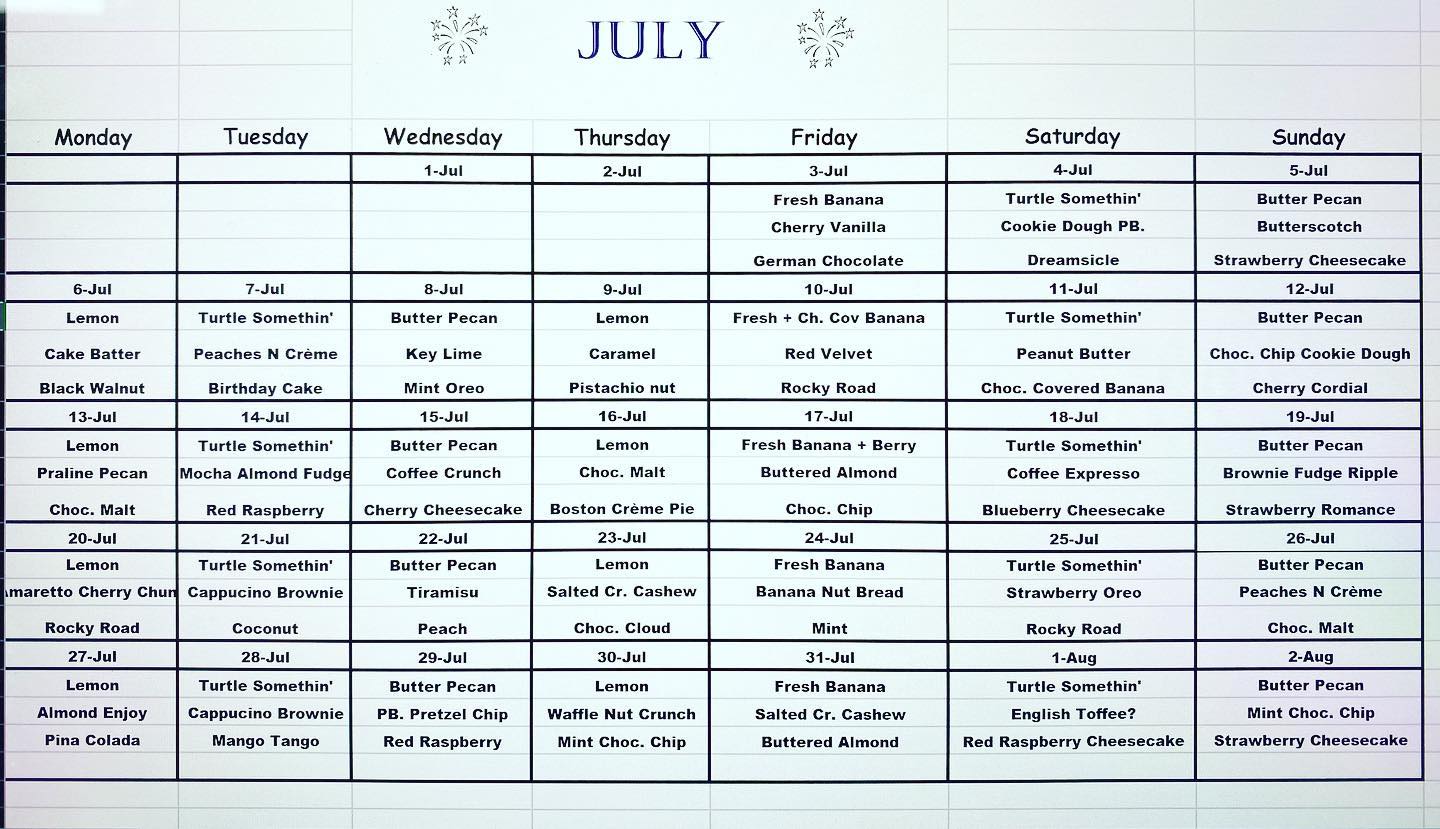 JULY
Monday Tuesday Wednesday Thursday Friday Saturday Sunday
1-Jul 2-Jul 3-Jul 4-Jul 5-Jul
Fresh Banana Turtle Somethin' Butter Pecan
Cherry Vanilla Cookie Dough PB. Butterscotch
German Chocolate Dreamsicle Strawberry Cheesecake
6-Jul 7-Jul 8-Jul 9-Jul 10-Jul 11-Jul 12-Jul
Lemon Turtle Somethin' Butter Pecan Lemon Fresh + Ch. Cov Banana Turtle Somethin' Butter Pecan
Cake Batter Peaches N Crème Key Lime Caramel Red Velvet Peanut Butter Choc. Chip Cookie Dough
Black Walnut Birthday Cake Mint Oreo Pistachio nut Rocky Road Choc. Covered Banana Cherry Cordial
13-Jul 14-Jul 15-Jul 16-Jul 17-Jul 18-Jul 19-Jul
Lemon Turtle Somethin' Butter Pecan Lemon Fresh Banana + Berry Turtle Somethin' Butter Pecan
Praline Pecan Mocha Almond Fudge Coffee Crunch Choc. Malt Buttered Almond Coffee Expresso Brownie Fudge Ripple
Choc. Malt Red Raspberry Cherry Cheesecake Boston Crème Pie Choc. Chip Blueberry Cheesecake Strawberry Romance
20-Jul 21-Jul 22-Jul 23-Jul 24-Jul 25-Jul 26-Jul
Lemon Turtle Somethin' Butter Pecan Lemon Fresh Banana Turtle Somethin' Butter Pecan
maretto Cherry Chun Cappucino Brownie Tiramisu Salted Cr. Cashew Banana Nut Bread Strawberry Oreo Peaches N Crème
Rocky Road Coconut Peach Choc. Cloud Mint Rocky Road Choc. Malt
27-Jul 28-Jul 29-Jul 30-Jul 31-Jul 1-Aug 2-Aug
Lemon Turtle Somethin' Butter Pecan Lemon Fresh Banana Turtle Somethin' Butter Pecan
Almond Enjoy Cappucino Brownie PB. Pretzel Chip Waffle Nut Crunch Salted Cr. Cashew English Toffee? Mint Choc. Chip
Pina Colada Mango Tango Red Raspberry Mint Choc. Chip Buttered Almond Red Raspberry Cheesecake Strawberry Cheesecake